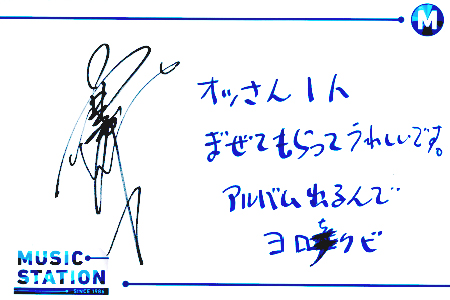 M
オッさん1人
まぜてもらってうれしいです。
アルバム出るんで
MUSIC
STATION
SINCE 1986